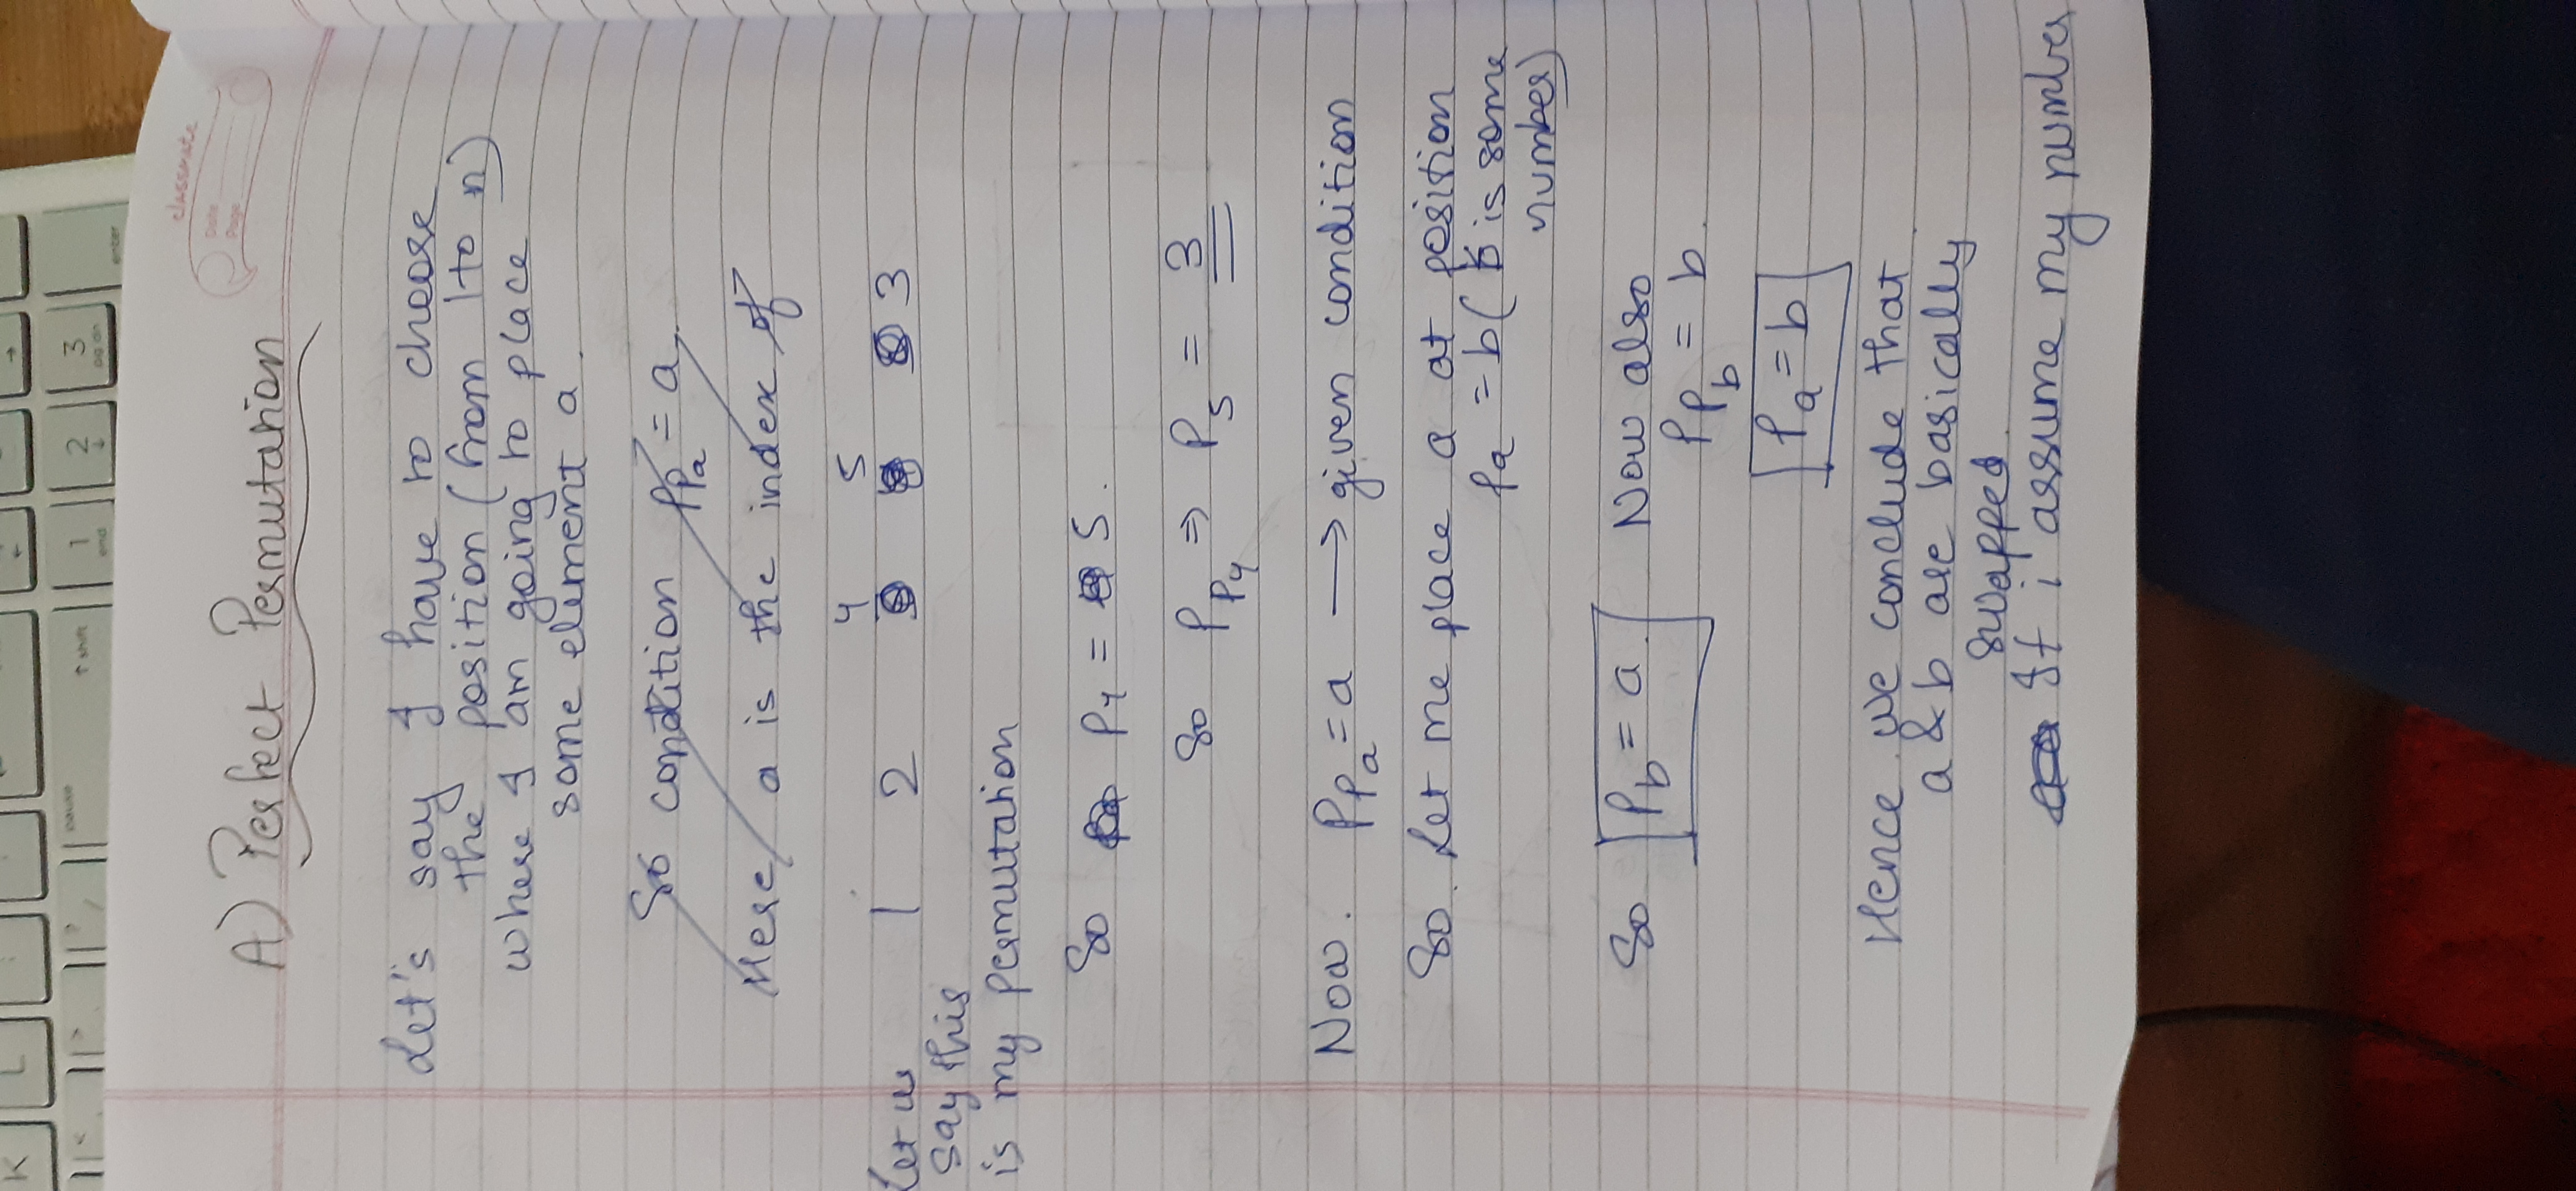 K L
←
→
<
>
?
/
pause
↑ shift
1
end
2
↓
3
pg dn
enter
classmate
Date
Page
A) Perfect Permutation
Let's say I have to choose
the position (from 1 to n)
where I am going to place
some element a.
So condition P_{P_a} = a.
Here a is the index of
4 5
1 2 3
Let us
say this
is my permutation
So P_4 = 5.
So P_{P_4} ⇒ P_5 = 3
Now. P_{P_a} = a → given condition
So. Let me place a at position
P_a = b ( b is some
number)
So P_b = a. Now also
P_{P_b} = b.
P_a = b
Hence we conclude that
a & b are basically
swapped.
If i assume my number